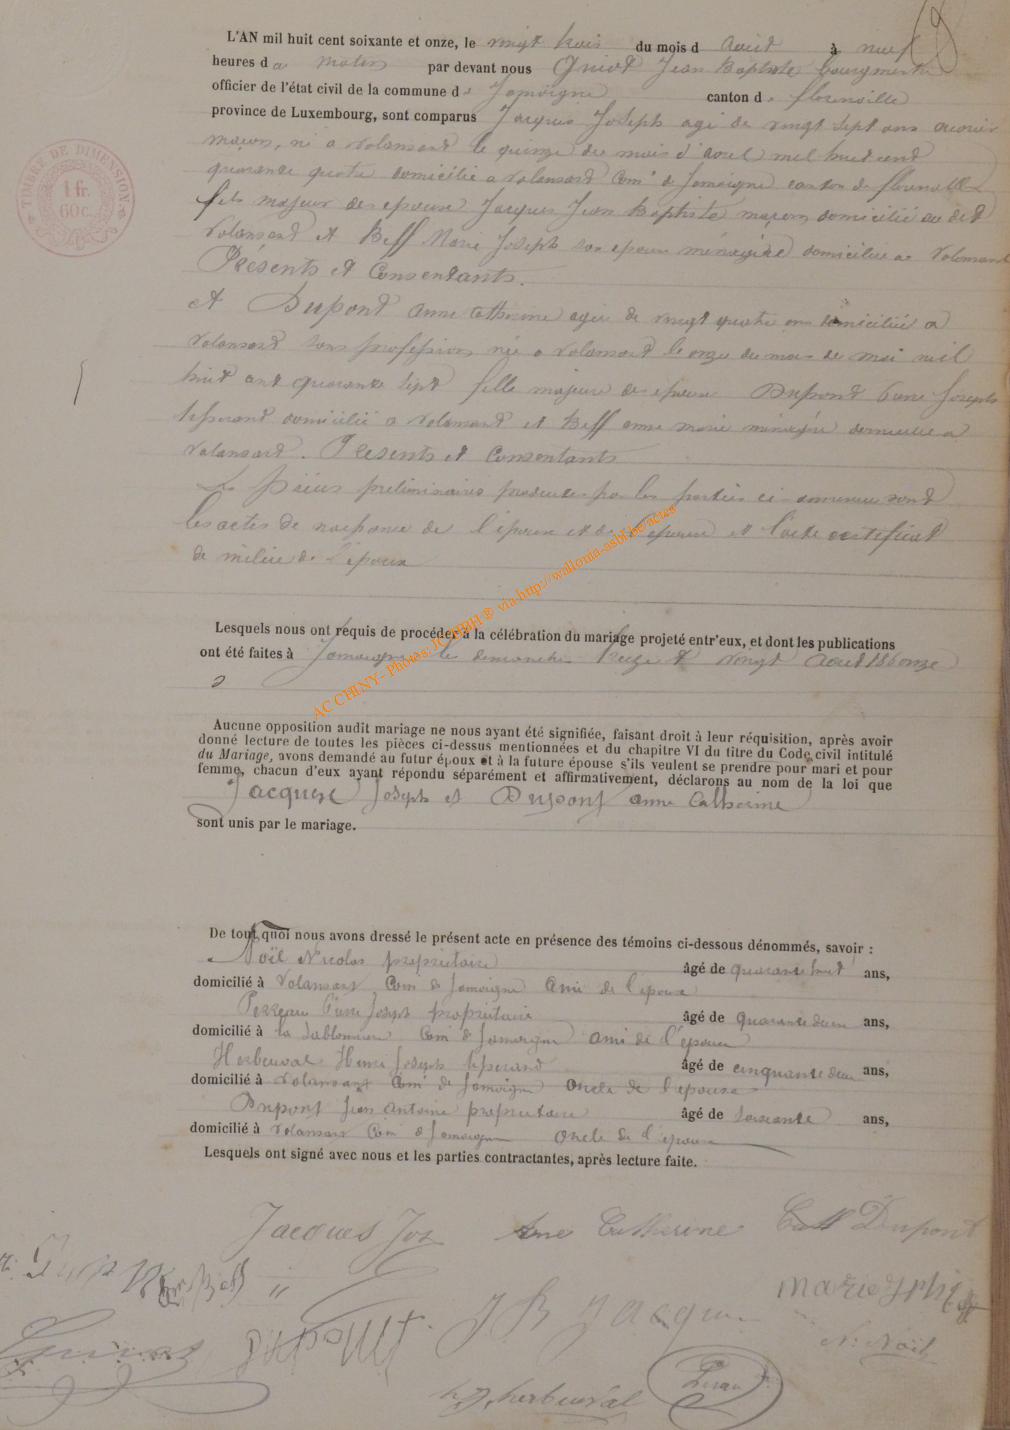 L'AN mil huit cent soixante et onze, le vingt trois du mois d aout à neuf
heures d u matin par devant nous Guiot Jean Baptiste bourgmestre
officier de l'état civil de la commune de Jamoigne canton de florenville
province de Luxembourg, sont comparus Jacques Joseph agé de vingt sept ans ouvrier
maçon, né a valansart le quinze du mois d'avril mil huit cent
quarante quatre domicilié a valansart Com. de Jamoigne canton de florenville
fils majeur des epoux Jacques Jean Baptiste maçon domicilié au dit
Valansart et Beff Marie Joseph son epouse ménagère domiciliée a Valansart
Présents et Consentants.
et Dupont anne catherine agée de vingt quatre ans domiciliée a
valansart sans profession née a valansart le onze du mois de mai mil
huit cent quarante sept fille majeure des epoux Dupont Pierre Joseph
tisserand domicilié a valansart et Beff anne marie ménagère domiciliée a
valansart. Présents et Consentants
Les pièces preliminaires produites par les parties ci-dessus sont
les actes de naissance de l'epoux et de l'epouse et l'acte certificat
de milice de l'epoux
Lesquels nous ont requis de procéder à la célébration du mariage projeté entr'eux, et dont les publications
ont été faites à Jamoigne les dimanches treize et vingt aout 18 onze
Aucune opposition audit mariage ne nous ayant été signifiée, faisant droit à leur réquisition, après avoir
donné lecture de toutes les pièces ci-dessus mentionnées et du chapitre VI du titre du Code civil intitulé
du Mariage, avons demandé au futur époux et à la future épouse s'ils veulent se prendre pour mari et pour
femme, chacun d'eux ayant répondu séparément et affirmativement, déclarons au nom de la loi que
Jacques Joseph et Dupont anne Catherine
sont unis par le mariage.
De tout quoi nous avons dressé le présent acte en présence des témoins ci-dessous dénommés, savoir :
Noël Nicolas propriétaire âgé de quarante huit ans,
domicilié à Valansart Com de Jamoigne Ami de l'epoux
Pierre Joseph propriétaire âgé de quarante deux ans,
domicilié à la Sablonnière Com de Jamoigne ami de l'epoux
Herbeuval Henri Joseph tisserand âgé de cinquante deux ans,
domicilié à valansart Com de Jamoigne Oncle de l'epouse
Dupont Jean Antoine propriétaire âgé de soixante ans,
domicilié à Valansart Com de Jamoigne Oncle de l'epouse
Lesquels ont signé avec nous et les parties contractantes, après lecture faite.
Jacques Jos Anne Catherine Dupont
J B Jacques
Dupont
N. Noël
h J herbeuval
TIMBRE DE DIMENSION
1 fr.
60 c.
AC CHINY - Photos: via http://wallonia-asbl.be/actes